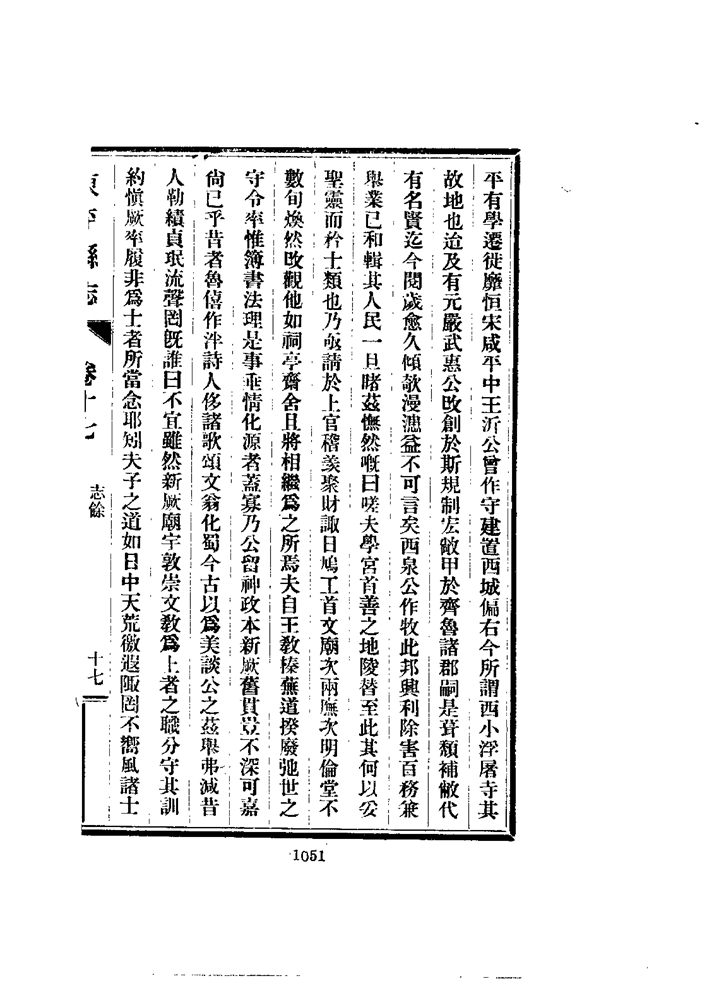 平有學遷徙靡恒宋咸平中王沂公曾作守建置西城偏右今所謂西小浮屠寺其
故地也迨及有元嚴武惠公改創於斯規制宏敞甲於齊魯諸郡嗣是葺類補敝代
有名賢迄今閱歲愈久傾欹漫漶益不可言矣西泉公作牧此邦興利除害百務兼
舉業已和輯其人民一旦睹茲憮然嘅曰嗟夫學宮首善之地陵替至此其何以妥
聖靈而矜士類也乃亟請於上官稽羨聚財諏日鳩工首文廟次兩廡次明倫堂不
數旬煥然改觀他如祠亭齋舍且將相繼爲之所焉夫自王敎榛蕪道揆廢弛世之
守令率惟簿書法理是事垂情化源者蓋寡乃公留神政本新厥舊貫豈不深可嘉
尙已乎昔者魯僖作泮詩人侈諸歌頌文翁化蜀今古以爲美談公之茲舉弗減昔
人勒績貞珉流聲罔旣誰曰不宜雖然新厥廟宇敦崇文敎爲上者之職分守其訓
約愼厥率履非爲士者所當念耶矧夫子之道如日中天荒徼遐陬罔不嚮風諸士
東平縣志 卷十七 志餘 十七
1051